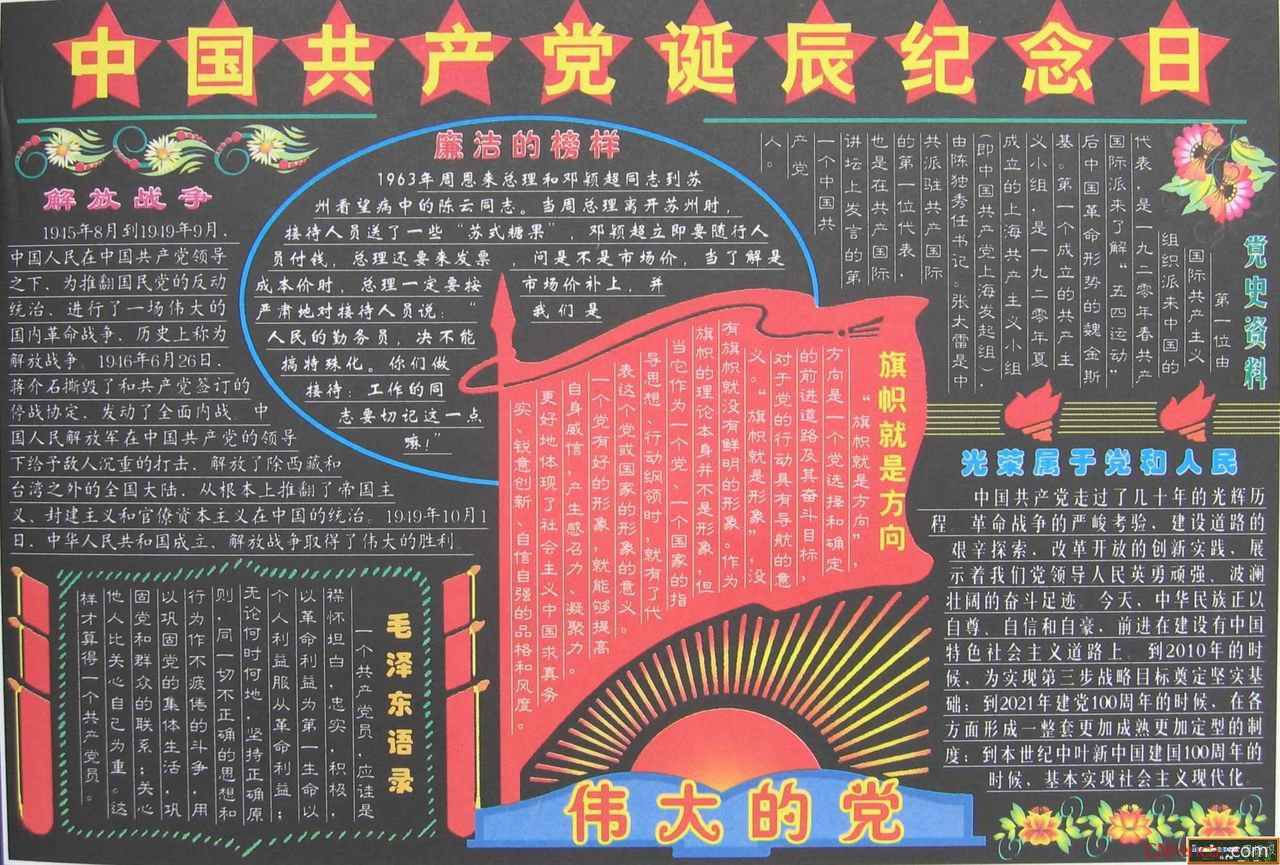 中国共产党诞辰纪念日
解放战争
1945年8月到1949年9月，
中国人民在中国共产党领导
之下，为推翻国民党的反动
统治，进行了一场伟大的
国内革命战争，历史上称为
解放战争。1946年6月26日，
蒋介石撕毁了和共产党签订的
停战协定，发动了全面内战，中
国人民解放军在中国共产党的领导
下给予敌人沉重的打击，解放了除西藏和
台湾之外的全国大陆，从根本上推翻了帝国主
义、封建主义和官僚资本主义在中国的统治。1949年10月1
日，中华人民共和国成立，解放战争取得了伟大的胜利
廉洁的榜样
1963年周恩来总理和邓颖超同志到苏
州看望病中的陈云同志。当周总理离开苏州时，
接待人员送了一些“苏式糖果”，邓颖超立即要随行人
员付钱，总理还要来发票，问是不是市场价，当了解是
成本价时，总理一定要按市场价补上，并
严肃地对接待人员说：“我们是
人民的勤务员，决不能
搞特殊化。你们做
接待：工作的同
志要切记这一点
嘛！”
党史资料
第一位由
国际共产主义
组织派来中国的
代表，是一九二零年春共产
国际派来了解“五四运动”
后中国革命形势的魏金斯
基。第一个成立的共产主
义小组，是一九二零年夏
成立的上海共产主义小组
（即中国共产党上海发起组），
由陈独秀任书记。张太雷是中
共派驻共产国际
的第一位代表，
也是在共产国际
讲坛上发言的第
一个中国共
产党
人。
旗帜就是方向
“旗帜就是方向”，
方向是一个党选择和确定
的前进道路及其奋斗目标，
对于党的行动具有导航的意
义。“旗帜就是形象”，没
有旗帜就没有鲜明的形象。作为
旗帜的理论本身并不是形象，但
当它作为一个党、一个国家的指
导思想、行动纲领时，就有了代
表这个党或国家的形象的意义。
一个党有好的形象，就能够提高
自身威信，产生感召力、凝聚力。
更好地体现了社会主义中国求真务
实、锐意创新、自信自强的品格和风度。
光荣属于党和人民
中国共产党走过了几十年的光辉历
程，革命战争的严峻考验，建设道路的
艰辛探索，改革开放的创新实践，展
示着我们党领导人民英勇顽强、波澜
壮阔的奋斗足迹。今天，中华民族正以
自尊、自信和自豪，前进在建设有中国
特色社会主义道路上，到2010年的时
候，为实现第三步战略目标奠定坚实基
础；到2021年建党100周年的时候，在各
方面形成一整套更加成熟更加定型的制
度；到本世纪中叶新中国建国100周年的
时候，基本实现社会主义现代化
毛泽东语录
一个共产党员，应该是
襟怀坦白，忠实，积极，
以革命利益为第一生命，以
个人利益服从革命利益；
无论何时何地，坚持正确原
则，同一切不正确的思想和
行为作不疲倦的斗争，用
以巩固党的集体生活，巩
固党和群众的联系；关心
他人比关心自己为重。这
样才算得一个共产党员。
伟大的党